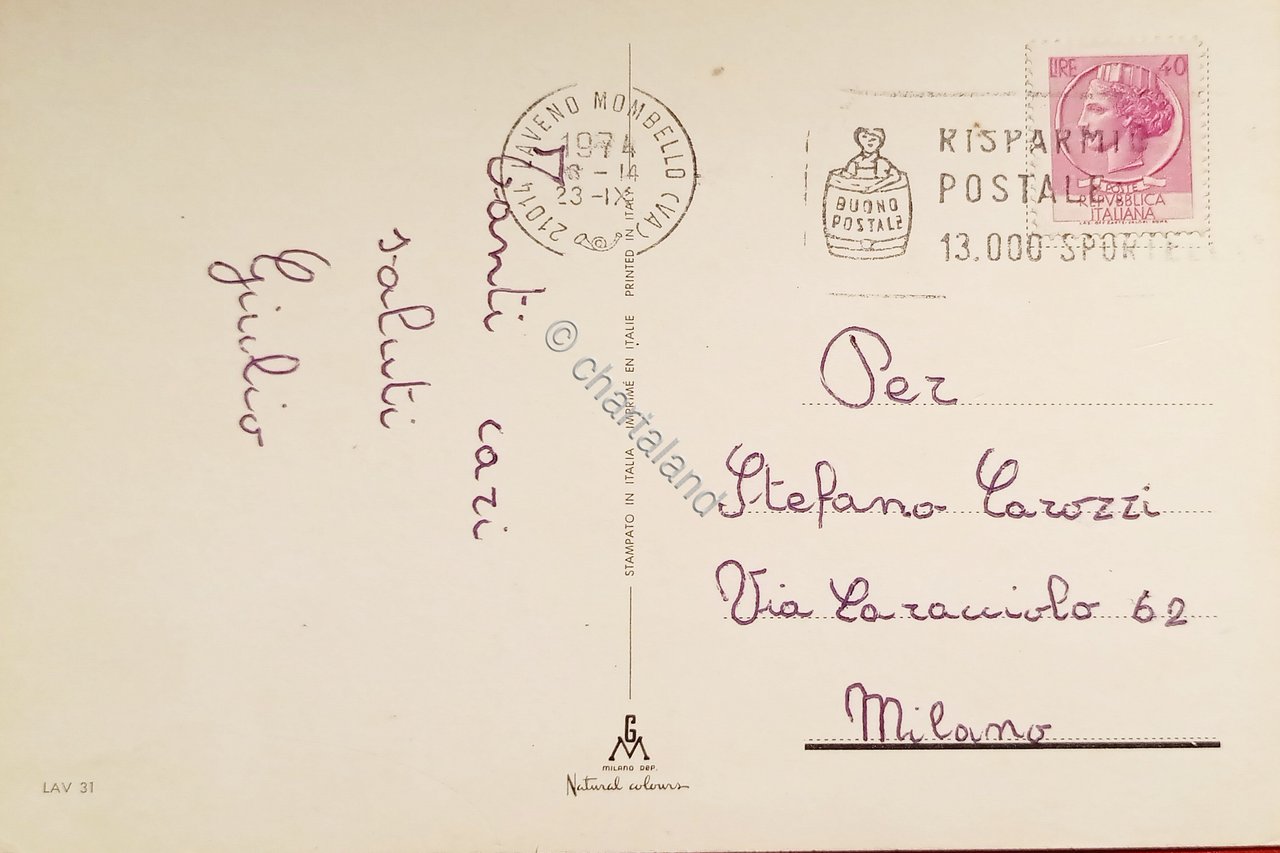 Tanti cari
saluti
Giulio
21014 LAVENO MOMBELLO (VA)
1974
23-IX
BUONO
POSTALE
RISPARMIO
POSTALE
13.000 SPORTELLI
LIRE 40
POSTE
REPVBBLICA
ITALIANA
Per
Stefano Carozzi
Via Caracciolo 62
Milano
STAMPATO IN ITALIA IMPRIMÉ EN ITALIE PRINTED IN ITALY
© chartaland
GM
MILANO DEP.
Natural colours
LAV 31